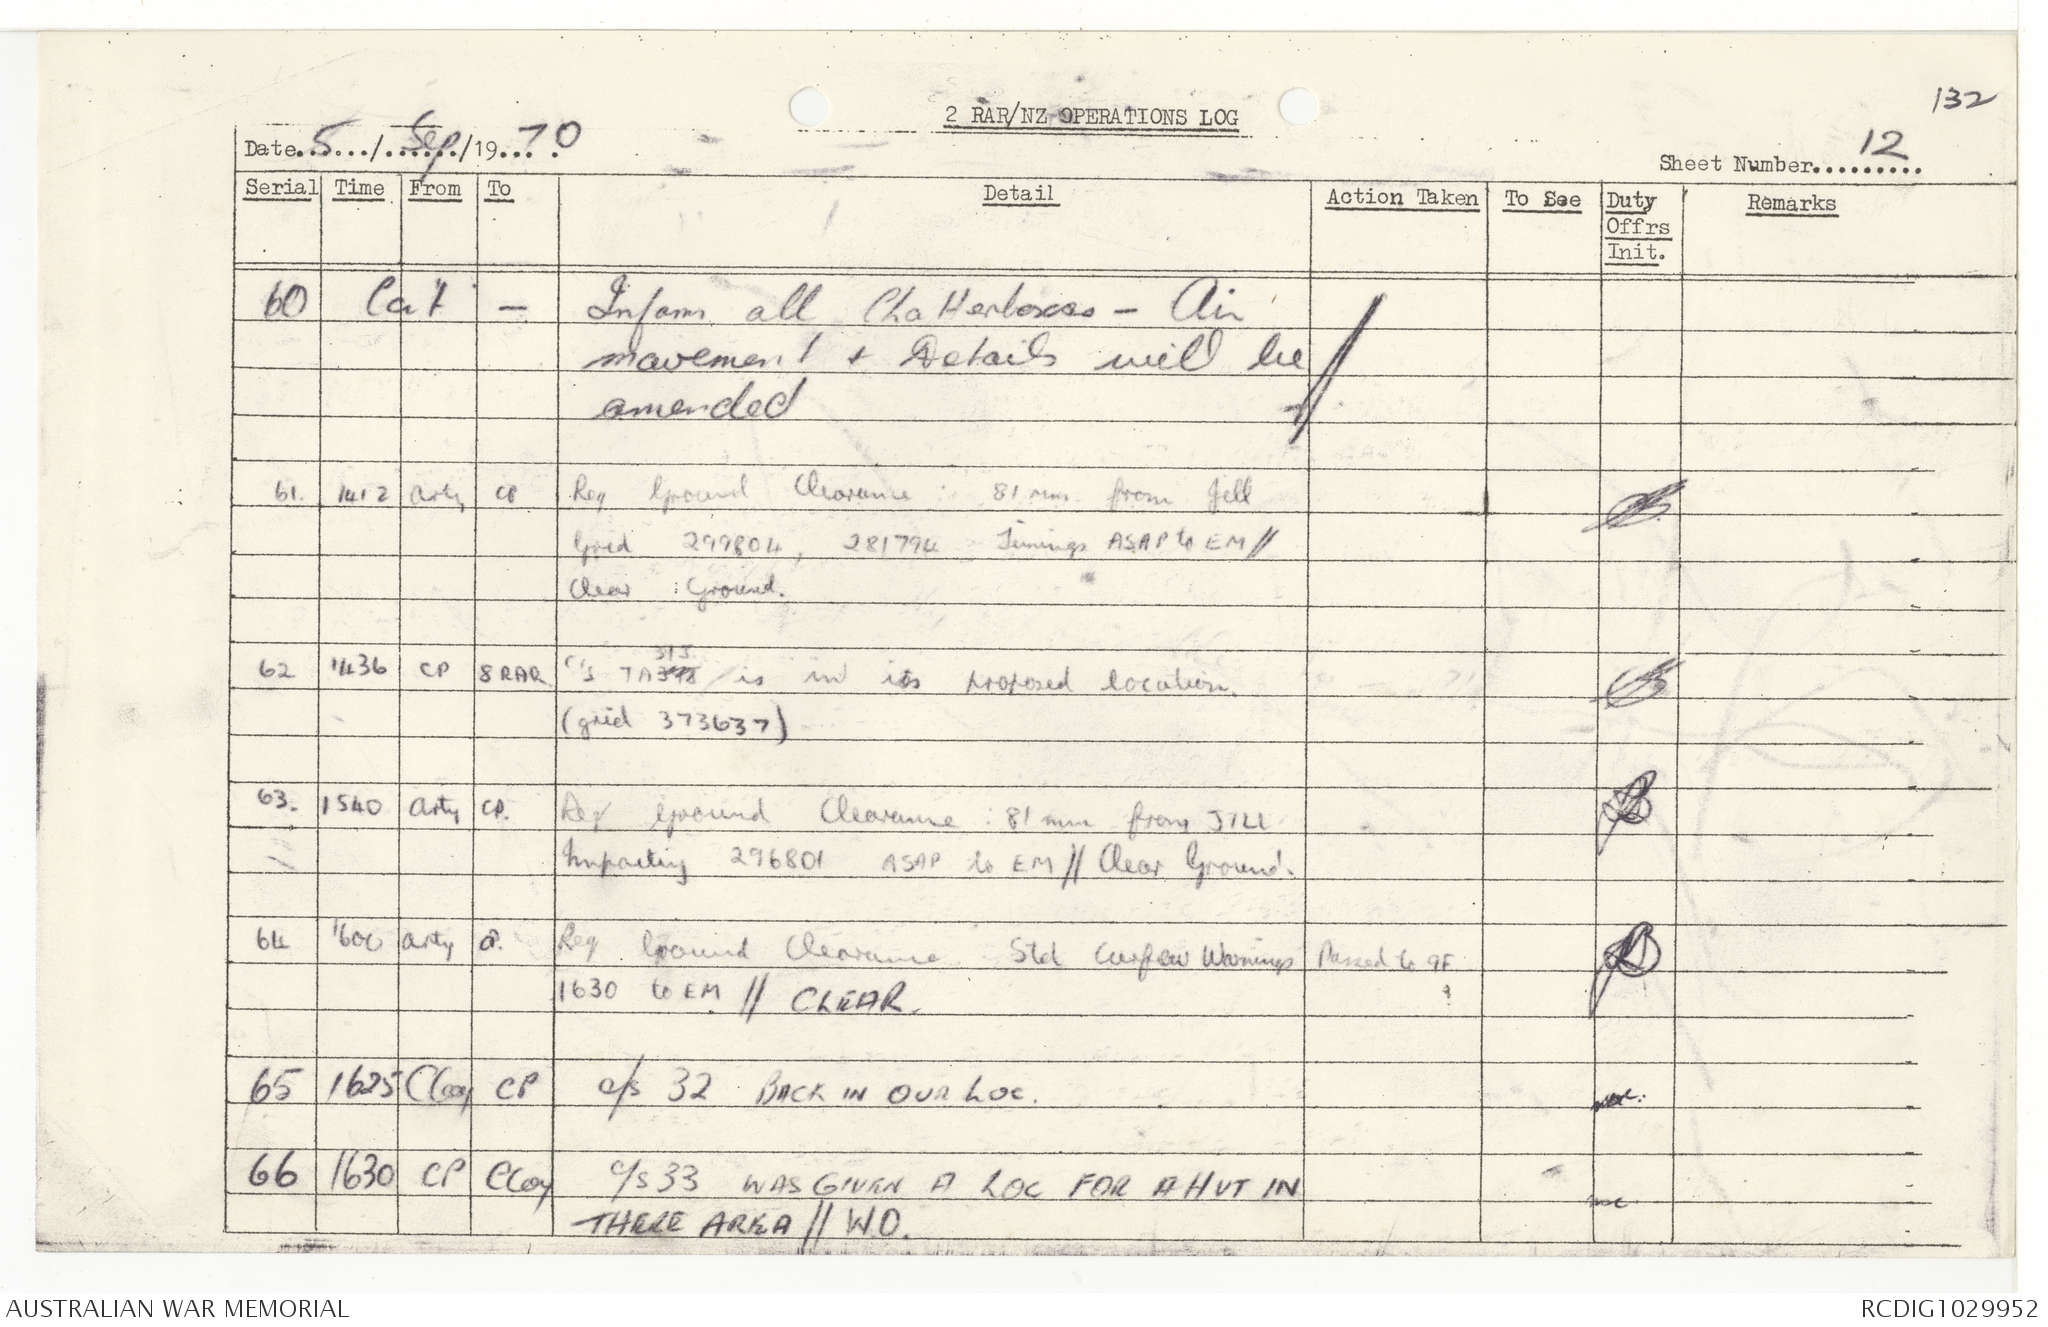 132
2 RAR/NZ OPERATIONS LOG
Date 5 / Sep /19 70
Sheet Number 12
Serial Time From To Detail Action Taken To See Duty Offrs Init. Remarks
60 Cat — Inform all Chatterboxes — Air
movement + Details will be
amended
61. 1412 arty CP Req Ground Clearance : 81 mm from Jell
Grid 299804, 281794 Timings ASAP to EM //
Clear : Ground.
62 1436 CP 8 RAR C/S TA 313 is in its proposed location.
(grid 373637)
63. 1540 arty CP. Req Ground Clearance : 81 mm from JILL
Impacting 296801 ASAP to EM // Clear Ground.
64 1600 arty CP. Req Ground Clearance Std Curfew Warnings Passed to
1630 to EM // CLEAR.
65 1625 C Coy CP c/s 32 BACK IN OUR LOC.
66 1630 CP C Coy c/s 33 WAS GIVEN A LOC FOR A HUT IN
THERE AREA // WO.
AUSTRALIAN WAR MEMORIAL
RCDIG1029952